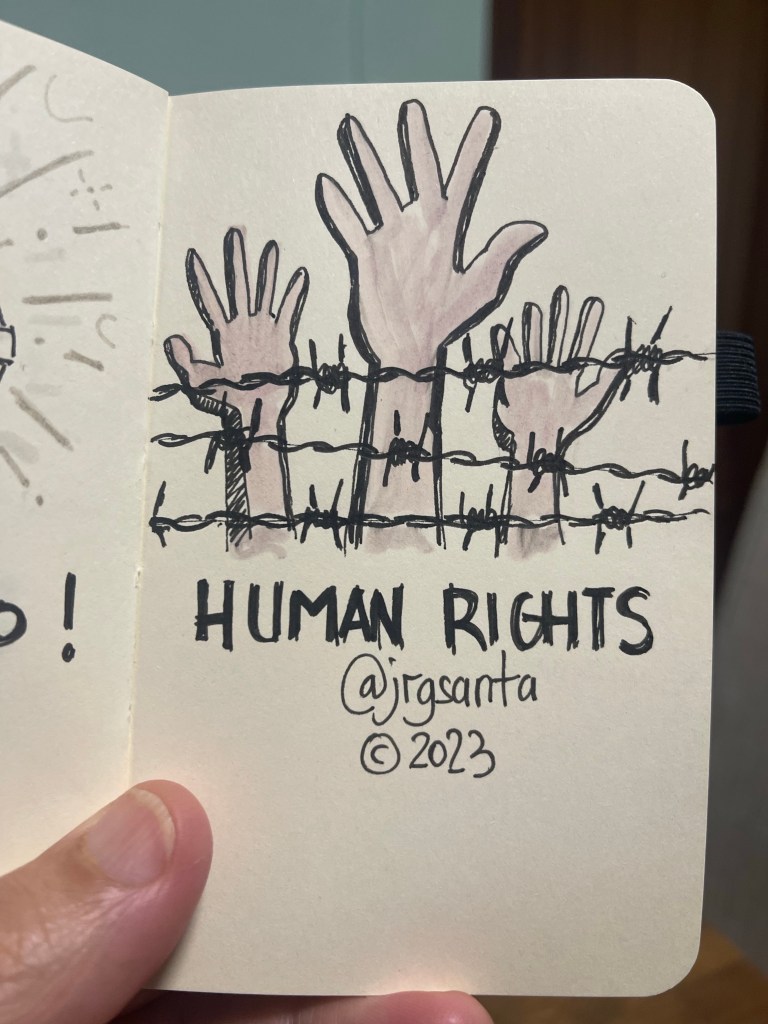 HUMAN RIGHTS
@jrgsanta
© 2023